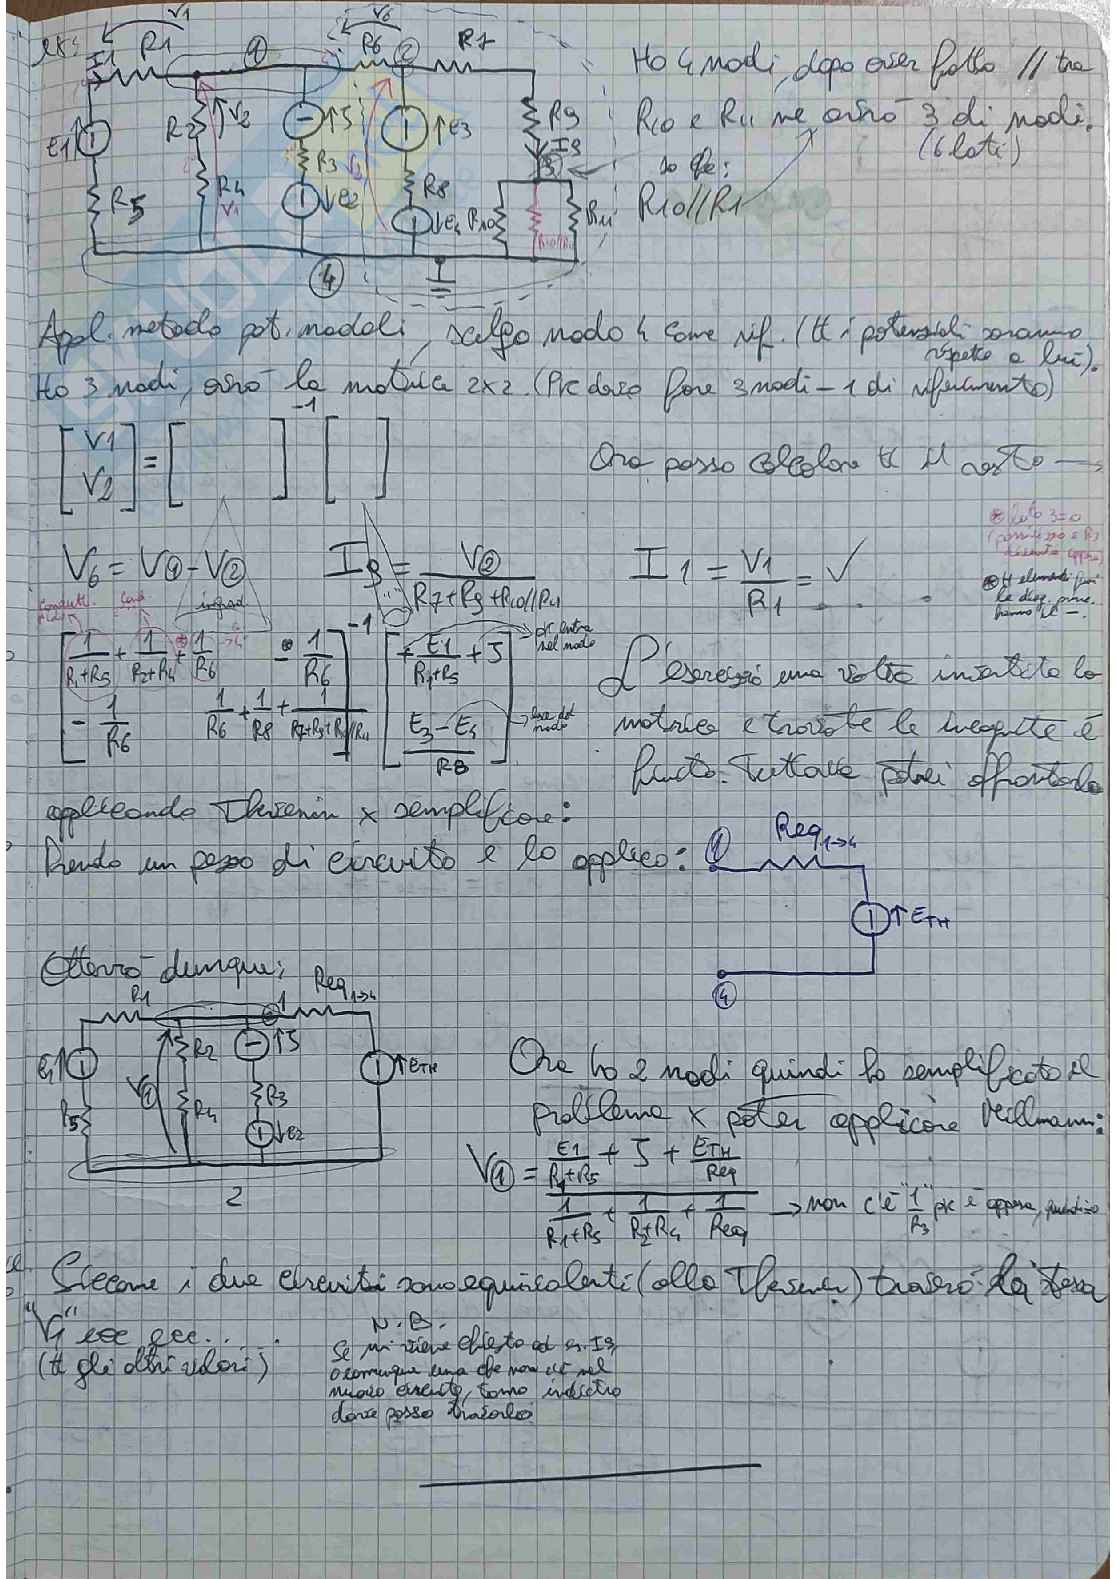 V1
V6
I1
R1
①
R6
②
R7
E1
R2
V2
J
E3
R9
I9
R3
R5
R4
V1
E2
R8
E4
R10
R11
④
Ho 4 nodi, dopo aver fatto // tra
R10 e R11 ne avrò 3 di nodi.
(6 lati)
R10//R1
Appl. metodo pot. nodali, scelgo nodo 4 come rif. (tt i potenziali saranno
rispetto a lui).
Ho 3 nodi, avrò la matrice 2x2. (Pk devo fare 3 nodi - 1 di riferimento)
[V1 V2] = [ ]⁻¹ [ ]
Ora posso calcolare tt il resto →
V6 = V① - V②
I9 = V② / (R7+R9+R10//R11)
I1 = V1/R1 = ✓
lato 3=0
tt elementi fuori
la diag. princ.
hanno il -.
1/(R1+R5) + 1/(R2+R4) + 1/R6
- 1/R6
-1
+ E1/(R1+R5) + J
pk entra
nel nodo
- 1/R6
1/R6 + 1/R8 + 1/(R7+R9+R10//R11)
(E3-E4)/R8
L'esercizio una volta invertita la
matrice e trovate le incognite è
finito. Tuttavia potrei affrontarlo
applicando Thevenin x semplificare:
Prendo un pezzo di circuito e lo applico:
①
Req1→4
ETH
④
Otterrò dunque:
R1
1
Req1→4
E1
R2
J
ETH
V①
R5
R4
R3
E2
2
Ora ho 2 nodi quindi ho semplificato il
problema x poter applicare Millmann:
V① = (E1/(R1+R5) + J + ETH/Req) / (1/(R1+R5) + 1/(R2+R4) + 1/Req)
→ non c'è "1/R3" pk è appesa, quindi no
Siccome i due circuiti sono equivalenti (allo Thevenin) troverò la stessa
"V1" ecc ecc...
(tt gli altri valori)
N.B.
Se mi viene chiesto ad es. I9,
o comunque una che non c'è nel
nuovo circuito, torno indietro
dove posso trovarlo.